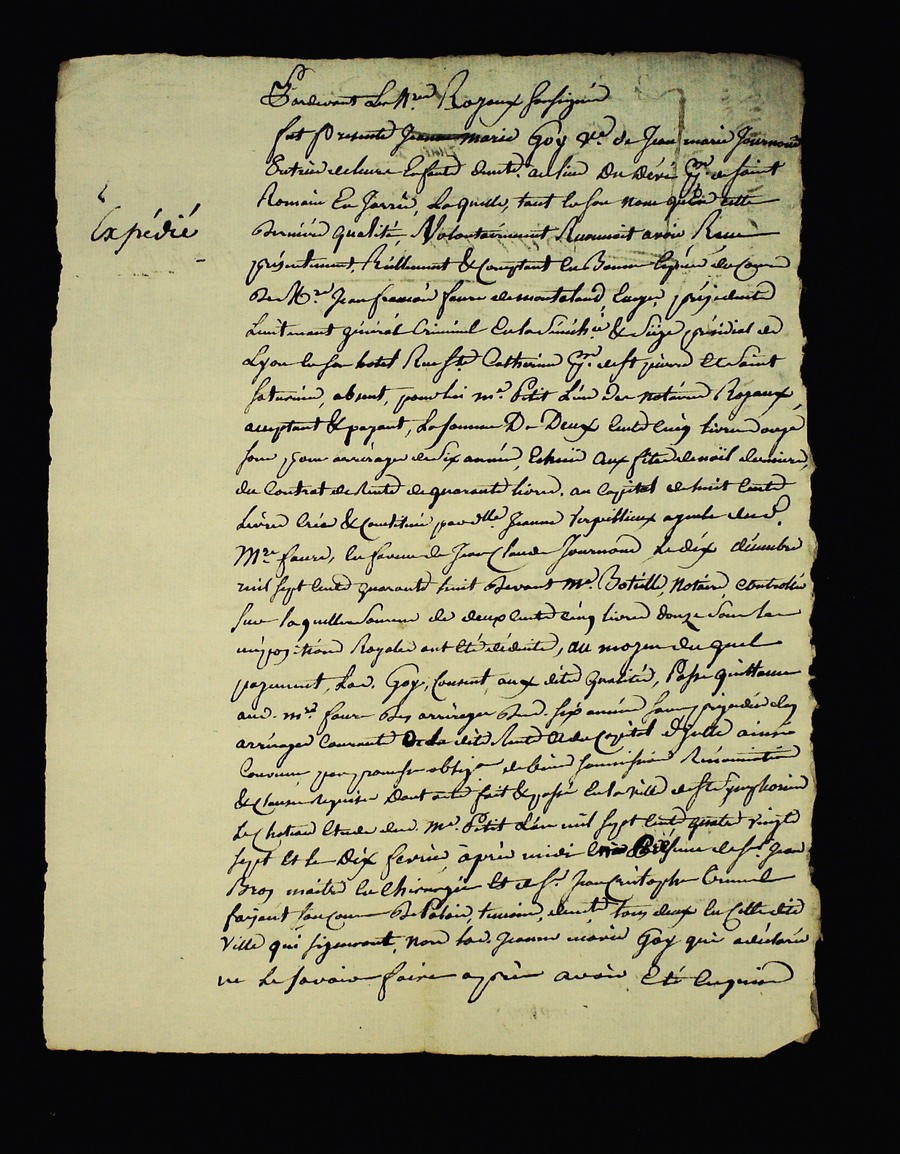 Pardevant Le Nre Royaux soussigné
fut présente Jeanne marie Goy Ve de Jean marie Journoud
tutrice de leurs Enfants demte au lieu Du Dévé psse de saint
Romain En Jarrêt, Laquelle, tant En son nom qu'En cette
Derniere qualité, Volontairement Reconnoit avoir Reçu
Expédié
présentement, Réellement & Comptant En Bonne Espece de Cours
De Mre Jean françois faure de montaland Ecuyer, président
Lieutenant général Criminel En la Sénéchée & Siège présidial de
Lyon En son hotel Rue Ste Catherine psse de st pierre Et Saint
Saturnin, absent, pour lui me Petit L'un des notaires Royaux,
acceptant & payant, La somme De Deux Cents Cinq livres onze
sous, pour arrérages de six années, Echues aux fêtes de noël dernieres,
du Contrat de Rente de quarante livres au Capital de huit Cents
Livres Créé & Constitué par dlle Jeanne Verpillieux ayeule dud.
Mre faure, En faveur de Jean Claude Journoud Le dix décembre
mil sept Cents quarante huit Devant Me Bateille, Notaire, Controllée
sur laquelle somme de deux Cents Cinq livres douze sous les
impositions Royales ont Eté déduite, au moyen du quel
payement, Lad. Goy, Consent, aux dites qualités, Passe quittance
aud. mre faure Des arrérages Desd. six années sans préjudice des
arrérages Courants De la dite Rente Et du Capital d'jcelle ainsi
Convenu par promesse obligon de biens soumissions Renonciations
& Clauses Requises Dont acte fait & passé En la ville de St Symphorien
Le Chateau Etude dud. Me Petit L'an mil sept Cents quatre vingt
sept Et le Dix fevrier après midi En Présence de sr Jean
Bros maitre En Chirurgie Et de sr Jean Cristophe
faisant son Cours De Palais, temoins, demte tous deux En Cette dite
Ville qui signeront, non lad. Jeanne marie Goy qui a déclaré
ne Le savoir faire après avoir Eté Enquise